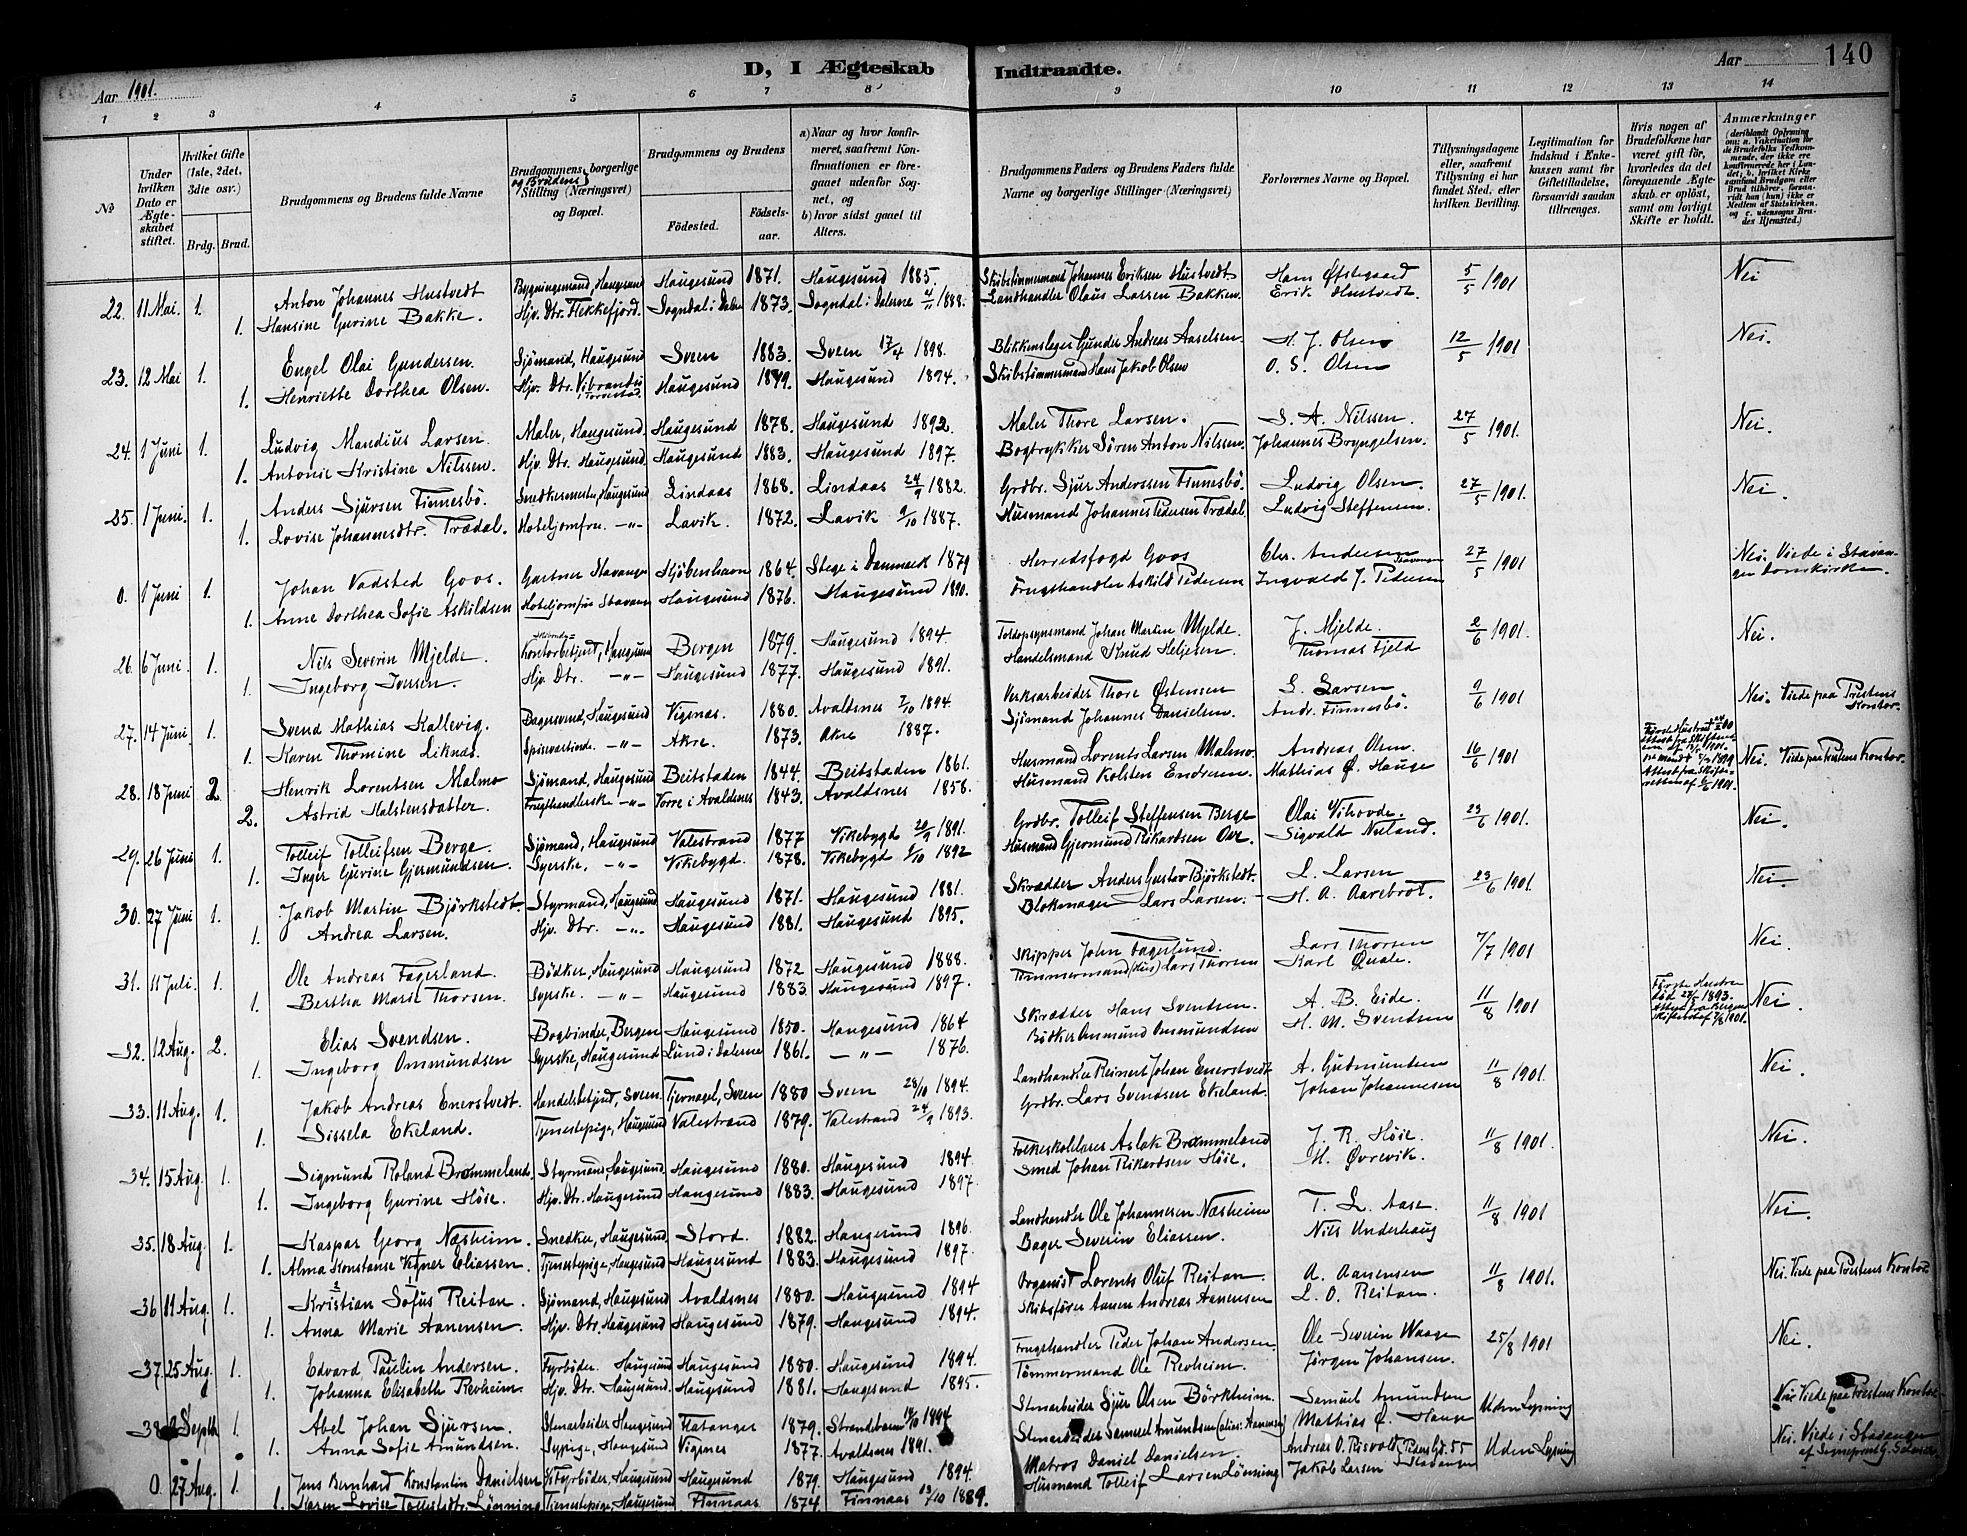 D, I Ægteskab Indtraadte.
Aar 1901. Aar 140
1 2 3 4 5 6 7 8 9 10 11 12 13 14
№
Under hvilken Dato er Ægteskabet stiftet.
Hvilket Gifte (1ste, 2det, 3die osv.) Brdg. Brud.
Brudgommens og Brudens fulde Navne
Brudgommens og Brudens borgerlige Stilling (Næringsvei) og Bopæl.
Brudgommens og Brudens Fødested. Fødselsaar.
a) Naar og hvor konfirmeret, saafremt Konfirmationen er foregaaet udenfor Sognet, og b) hvor sidst gaaet til Alters.
Brudgommens Faders og Brudens Faders fulde Navne og borgerlige Stillinger (Næringsvei)
Forlovernes Navne og Bopæl.
Tillysningsdagene eller, saafremt Tillysning ei har fundet Sted, efter hvilken Bevilling.
Legitimation for Indskud i Enkekassen samt for Giftetilladelse, forsaavidt saadan tiltrænges.
Hvis nogen af Brudefolkene har været gift før, hvorledes da det foregaaende Ægteskab er opløst, samt om lovligt Skifte er holdt.
Anmærkninger
22. 11 Mai. 1. Anton Johannes Hustvedt Bygningsmand, Haugesund Haugesund 1871. Haugesund 1885. Skibstimmermand Johannes Eriksen Hustvedt Hans Østegaard 5/5 1901 Nei
1. Hansine Gurine Bakke. Hjv. Dtr. Flekkefjord. Sogndal i Dalene 1873. Sogndal i Dalerne 1888. Landhandler Olaus Larsen Bakken. Erik Hustvedt.
23. 12 Mai 1. Engel Olai Gundersen. Sjömand, Haugesund Sveen 1883. Sveen 17/4 1898. Blikkenslager Gunder Andreas Aaselsen H. J. Olsen 12/5 1901 Nei.
1. Henriette Dorthea Olsen. Hjv. Dtr. Haugesund 1879. Haugesund 1894. Skibstimmermand Hans Jakob Olsen O. S. Olsen
24. 1 Juni 1. Ludvig Mandius Larsen. Maler, Haugesund. Haugesund 1878. Haugesund 1892. Maler Thore Larsen. S. A. Nilssen. 27/5 1901. Nei.
1. Antonie Kristine Nilssen. Hjv. Dtr. Haugesund. Haugesund 1883. Haugesund 1897. Bogtrykker Sören Anton Nilssen. Johannes Bryngelsen.
25. 1 Juni. 1. Anders Sjursen Finnesbö. Snedkermester, Haugesund Lindaas 1868. Lindaas 24/9 1882. Grdbr. Sjur Anderssen Finnesbö. Ludvig Olsen. 27/5 1901. Nei.
1. Lovise Johannesdtr. Trædal. Hoteljomfru. -"- Lavik. 1872. Lavik 9/10 1887. Husmand Johannes Pedersen Trædal. Ludvig Steffensen.
0. 1 Juni 1. Johan Vadsted Goos. Gartner Stavanger Kjöbenhavn 1864. Stege i Danmark 1879 Herredsfogd Goos Chr. Andersen Stavanger 27/5 1901 Nei. Viede i Stavanger Domkirken.
1. Anne Dorthea Sofie Askildsen Hoteljomfru Stavanger Haugesund 1876. Haugesund 1890. Frugthandler Askild Pedersen Ingvald J. Pedersen
26. 6 Juni. 1. Nils Severin Mjelde. Kontorbetjent, Haugesund Bergen 1879. Haugesund 1894. Toldopsynsmand Johan Martin Mjelde. J. Mjelde. 2/6 1901. Nei.
1. Ingeborg Iversen. Hjv. Dtr. -"- Haugesund 1877. Haugesund 1891. Handelsmand Knud Heljesen. Thomas Fjeld
27. 14 Juni. 1. Svend Mathias Kallevig. Bagersvend, Haugesund Vigsnæs. 1880. Avaldsnes 7/10 1894. Verksarbeider Thore Østensen L. Larsen 9/6 1901 Nei. Viede paa Prestens Kontor.
1. Karen Thomine Liknæs. Spisevertinde. -"- Akre. 1873. Akre 1887. Sjömand Johannes Danielsen. Andr. Finnesbö.
28. 18 Juni 2. Henrik Lorentsen Malmo Sjömand, Haugesund Beitstaden 1844. Beitstaden 1861. Husmand Lorents Larsen Malmo Andreas Olsen. 16/6 1901 Nei. Viede paa Prestens Kontor.
2. Astrid Halstensdatter. Frugthandlerske -"- Vorre i Avaldsnes 1843. Avaldsnes 1858. Husmand Kolsten Endresen. Mathias Ø. Hauge
29. 26 Juni 1. Tolleif Tolleifsen Berge. Sjömand, Haugesund Valestrand 1877 Vikebygd 20/9 1891. Grdbr. Tolleif Steffensen Berge Olai Vihovde. 23/6 1901. Nei.
1. Inger Gurine Gjermundsen. Syerske. -"- Vikebygd. 1878. Vikebygd 1892 Husmand Gjermund Rikardsen Sigvald Næland.
30. 27 Juni 1. Jakob Martin Björkstedt. Styrmand, Haugesund Haugesund 1871. Haugesund 1881. Skrædder Anders Gustav Björkstedt. L. Larsen 23/6 1901. Nei.
1. Andrea Larsen. Hjv. Dtr. -"- Haugesund 1881. Haugesund 1895. Blokmager Lars Larsen. H. A. Aarebrot.
31. 11 Juli. 1. Ole Andreas Fagerland. Bödker, Haugesund Haugesund 1872 Haugesund 1888. Skipper John Fagerlund. Lars Thorsen 7/7 1901 Nei.
1. Bertha Marie Thorsen. Syerske. -"- Haugesund 1883. Haugesund 1897. Timmermand (Hus) Lars Thorsen Karl Qvale.
32. 12 Aug. 2. Elias Svendsen. Bogbinder, Bergen Haugesund 1850. Haugesund 1864 Skrædder Hans Svendsen A. B. Eide. 11/8 1901 Förste Hustru död 1893. Nei.
1. Ingeborg Ommundsen Syerske, Haugesund Lund i Dalerne 1861. -"- 1876. Bödker Ommund Ommundsen H. M. Svendsen
33. 11 Aug. 1. Jakob Andreas Enerstvedt. Handelsbetjent, Sveen. Tjernagel, Sveen 1880 Sveen 28/10 1894. Landhandler Reinert Johan Enerstvedt A. Gudmundsen 11/8 1901. Nei.
1. Sissela Ekeland. Tjenestepige, Haugesund Valestrand 1879. Valestrand 24/9 1893. Grdbr. Lars Svendsen Ekeland. Johan Johannesen
34. 15 Aug. 1. Sigmund Roland Brommeland Styrmand, Haugesund. Haugesund 1880. Haugesund 1894. Folkeskolelærer Aslak Brommeland J. R. Höie. 11/8 1901. Nei.
1. Ingeborg Gurine Höie. Hjv. Dtr. Haugesund Haugesund 1883. Haugesund 1897. Smed Johan Rikardsen Höie. M. Øvrevik.
35. 18 Aug. 1. Kaspar Georg Næsheim. Snedker, Haugesund. Stord. 1882. Haugesund 1896. Landhandler Ole Johannesen Næsheim T. L. Aase. 11/8 1901 Nei.
1. Alma Konstanse Eliassen. Tjenestepige, Haugesund Haugesund 1883. Haugesund 1897. Bager Severin Eliassen. Nils Underhaug
36 11 Aug. 1. Kristian Sofus Reitan. Sjömand, Haugesund Avaldsnes 1880. Haugesund 1894 Organist Lorents Oluf Reitan. A. Aanensen 11/8 1901. Nei. Viede paa Prestens Kontor.
1. Anna Marie Aanensen. Hjv. Dtr. Haugesund Haugesund 1879. Haugesund 1894. Skibsförer Aanen Andreas Aanensen L. O. Reitan.
37. 25 Aug. 1. Edvard Paulin Andersen. Fyrböder. Haugesund Haugesund 1880. Haugesund 1894. Frugthandler Peder Johan Andersen. Ole Severin Waage 25/8 1901 Nei.
1. Johanna Elisabeth Revheim. Hjv. Dtr. Haugesund. Haugesund 1881. Haugesund 1895. Tömmermand Ole Revheim. Jörgen Johansen.
38. Septb 1. Abel Johan Sjursen. Stenarbeider Haugesund Flatanger 1879. Strandebarm 1894 Stenarbeider Sjur Olsen Börkheim. Samuel Amundsen Uden Lysning Nei Viede paa Prestens Kontor.
1. Anna Sofie Amundsen. Sypige, Haugesund Vigsnes 1877. Avaldsnes 1891. Stenarbeider Samuel Amundsen (alias: Aanensen) Mathias Ø. Hauge
0. 27 Aug. 1. Jens Bernhard Konstantin Danielsen Fyrböder, Haugesund Haugesund 1879. Haugesund 1894. Matros Daniel Danielsen. Andreas O. Risvold, Pedersgd. 55 Stavanger Uden Lysning Nei. Viede i Stavanger
1. Karen Lovise Tollefsdtr. Lönning Tjenestepige, Haugesund Finnaas 1874 Finnaas 13/10 1889. Husmand Tolleif Larsen Lönning Jakob Larsen